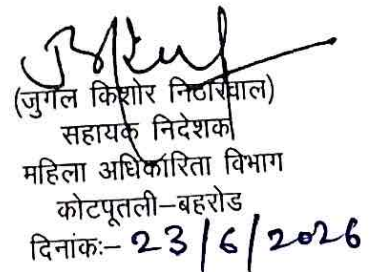 (जुगल किशोर निठारवाल)
सहायक निदेशक
महिला अधिकारिता विभाग
कोटपूतली–बहरोड
दिनांकः– 23/6/2026